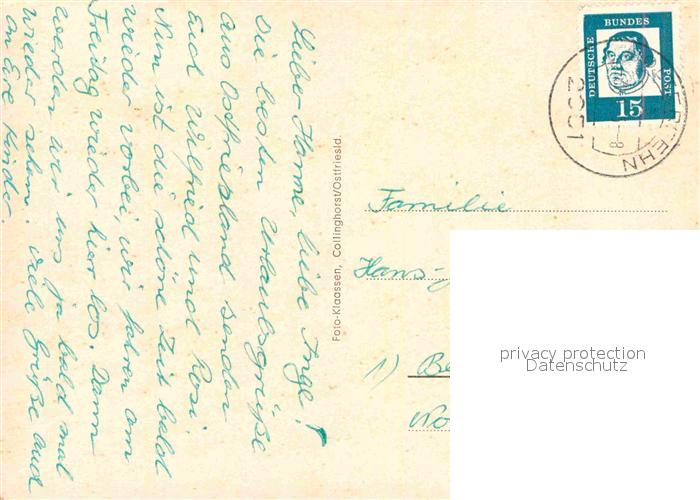 Lieber Hanne, liebe Inge!
die besten Urlaubsgrüße
aus Ostfriesland senden
Euch Wilfried und Rosi
Nun ist die schöne Zeit bald
wieder vorbei, wir fahren am
Freitag wieder hier los. Dann
werden wir uns ja bald mal
wieder sehen. Viele Grüße auch
an Eure Kinder.
Foto-Klaassen, Collinghorst/Ostfriesld.
DEUTSCHE BUNDES POST
15
2951
EHN
Familie
Hans-
1) Be
No
privacy protection
Datenschutz